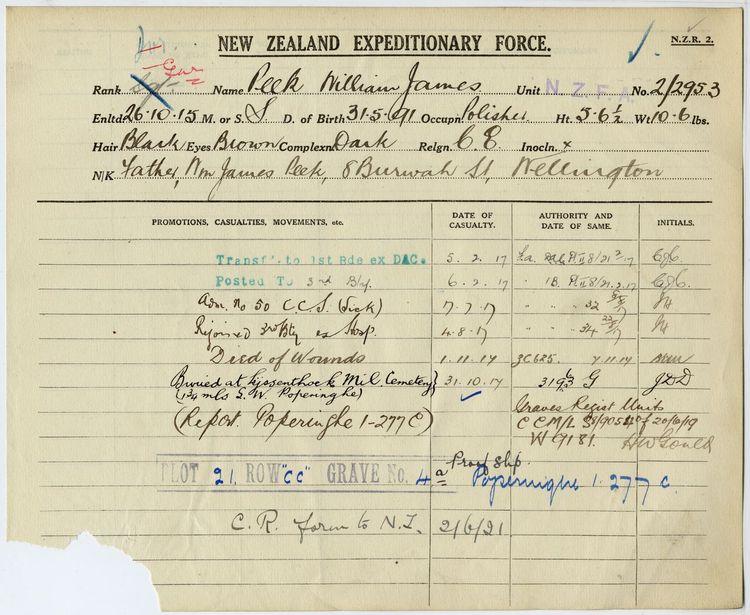 Gnr
NEW ZEALAND EXPEDITIONARY FORCE.
N.Z.R. 2.
Rank Name Peek William James Unit N.Z.F.A. No. 2/2953
Enltd 26.10.15 M. or S. S D. of Birth 31.5.91 Occupn. Polisher Ht. 5.6½ Wt 10.6 lbs.
Hair Black Eyes Brown Complexn Dark Relgn. C.E. Inocln. x
N/K Father, Wm James Peek, 8 Burwah St, Wellington
PROMOTIONS, CASUALTIES, MOVEMENTS, etc. DATE OF CASUALTY. AUTHORITY AND DATE OF SAME. INITIALS.
Transf'. to 1st Bde ex DAC. 5.2.17
Posted To 3rd Bty. 6.2.17
Adm. No 50 C.C.S. (Sick) 7.7.17 " " 32
Rejoined 3rd Bty ex Hosp. 4.8.17 " " 34
Died of Wounds 1.11.17 7.11.17
Buried at Lijssenthoek Mil. Cemetery} 31.10.17 G JDD
(1¾ mls S.W. Poperinghe)
(Report. Poperinghe 1-277C)
Graves Regist Units
of 20/6/19
W 9181. HWGould
PLOT 21. ROW "CC" GRAVE No. 4a Proof Slip. Poperinghe 1.277 C.
C.R. form to N.Z. 2/6/21